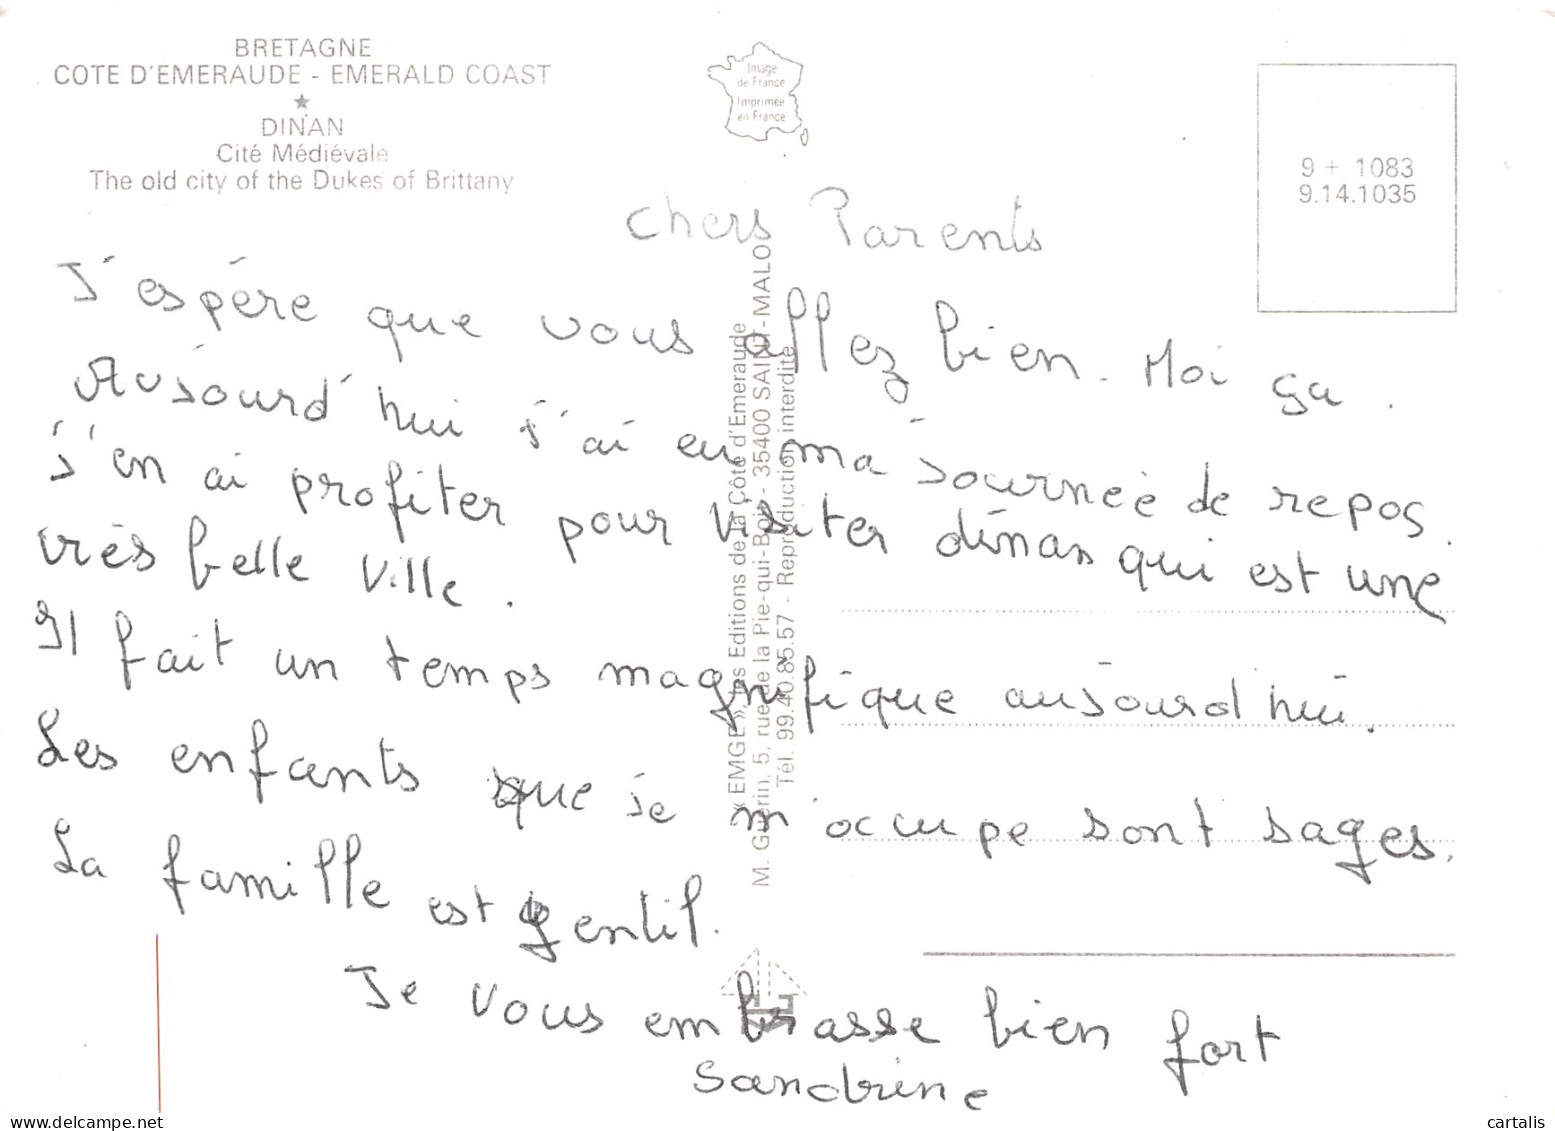 BRETAGNE
COTE D'EMERAUDE - EMERALD COAST
★
DINAN
Cité Médiévale
The old city of the Dukes of Brittany
Image
de France
Imprimée
en France
9 + 1083
9.14.1035
Chers Parents
J'espére que vous allez bien. Moi ça.
Aujourd'hui j'ai eu ma journeé de repos.
j'en ai profiter pour visiter dinan qui est une
très belle ville.
Il fait un temps magnifique aujourd'hui.
Les enfants que je m'occupe sont sages.
La famille est gentil.
Je vous embrasse bien fort
Sandrine
« EMGE », les Editions de la Côte d'Emeraude
M. Guérin, 5, rue de la Pie-qui-Boit - 35400 SAINT-MALO
Tél. 99.40.85.57 - Reproduction interdite
www.cartalis
delcampe.net